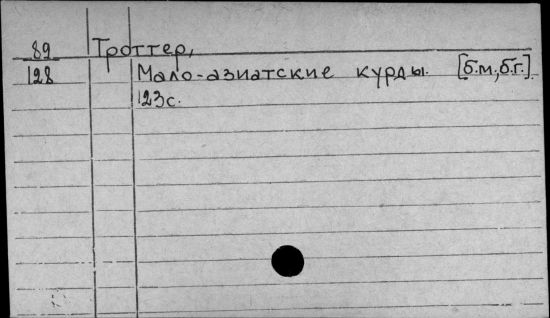 89 Троттер,
128 Мало-азиатские курды. [б.м.,б.г.]
123с.